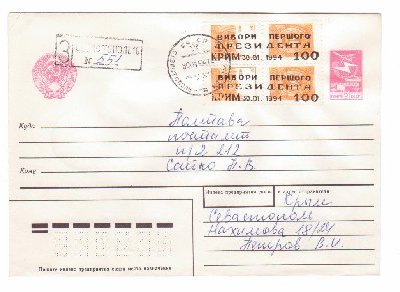 ВИБОРИ ПЕРШОГО
ПРЕЗИДЕНТА
КРИМ 30.01.1994 100
ВИБОРИ ПЕРШОГО
ПРЕЗИДЕНТА
КРИМ 30.01.1994 100
З
№ 251
Куда Полтава
почтамт
Кому Сайко Н.В.
Индекс предприятия связи и адрес отправителя
Крым
Севастополь
Нахимова 18/24
Петров В.И.
Пишите индекс предприятия связи места назначения